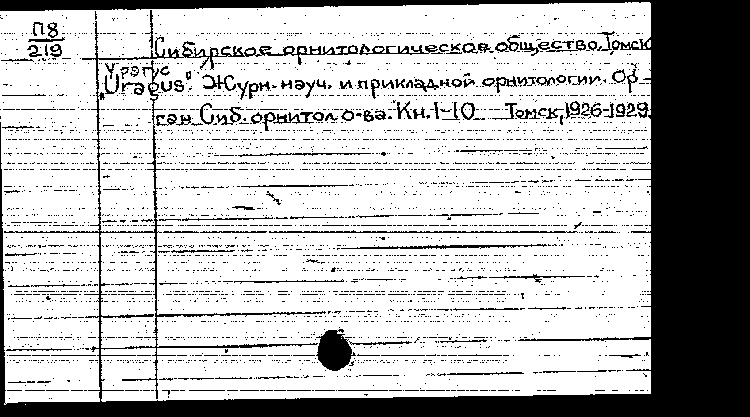 П8
219
Сибирское орнитологическое общество. Томск
Урагус
"Uragus". Журн. науч. и прикладной орнитологии. Ор-
ган Сиб. орнитол о-ва. Кн. 1-10 Томск, 1926-1929.